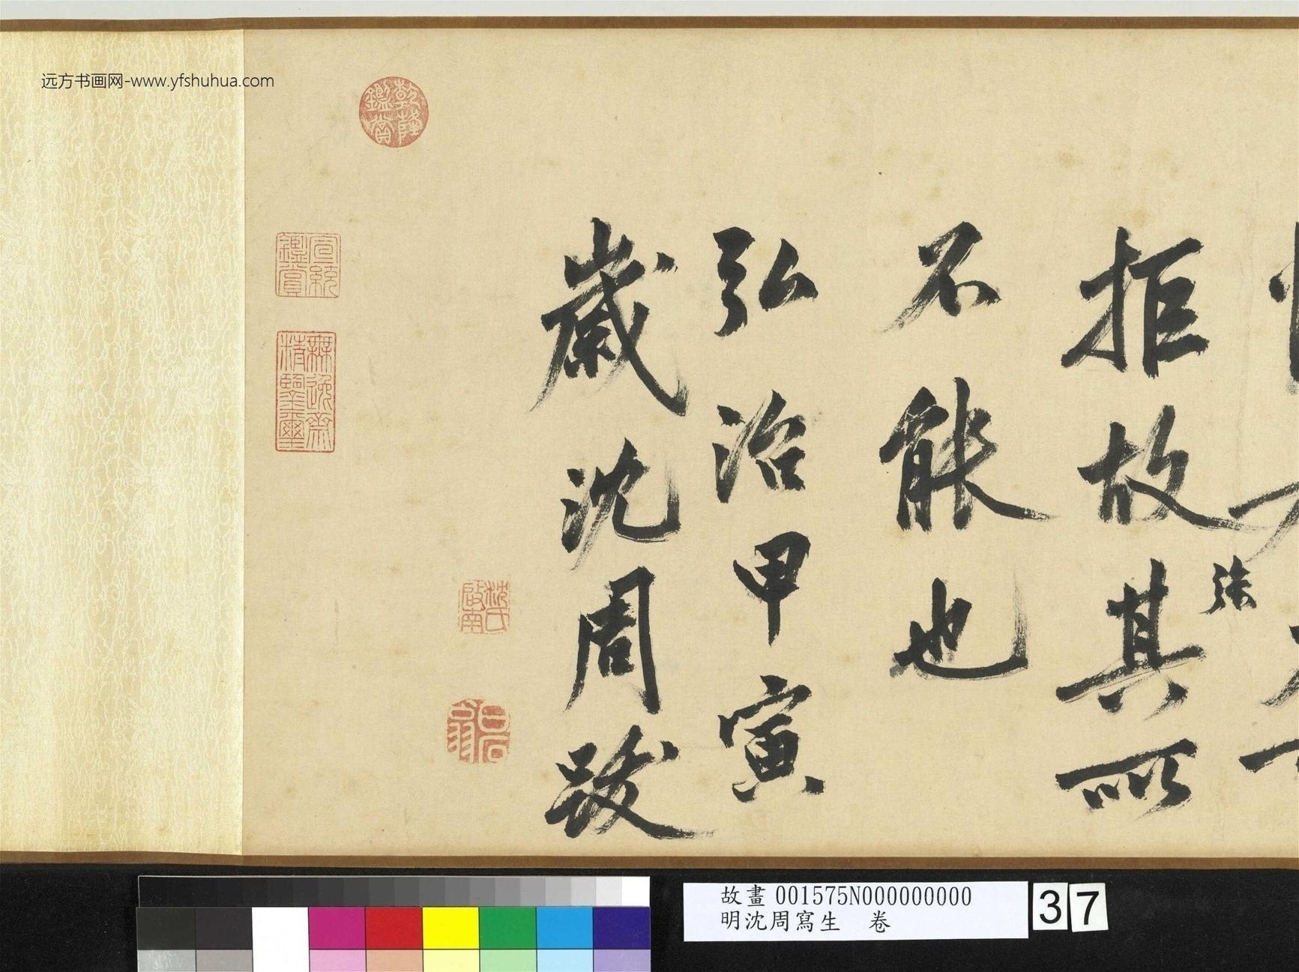 拒故其所
法
不能也
弘治甲寅
歲沈周跋
乾隆鑑賞
宣統鑑賞
無逸齋精鑒璽
啟南
石田
远方书画网-www.yfshuhua.com
故畫 001575N000000000
明沈周寫生 卷
37